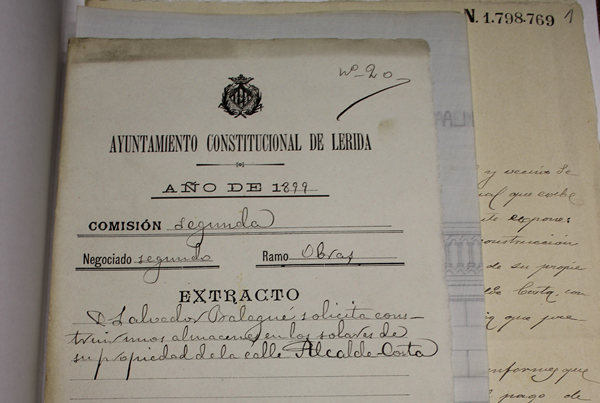 N. 1.798.769 1
Nº 20
AYUNTAMIENTO CONSTITUCIONAL DE LERIDA
AÑO DE 1899
COMISIÓN segunda
Negociado segundo Ramo Obras
EXTRACTO
D. Salvador Balagué solicita cons-
truir unos almacenes en los solares de
su propiedad de la calle Alcalde Costa
y vecino de
que
expone:
construcción
de su propie
Costa, con
que pre
pago de